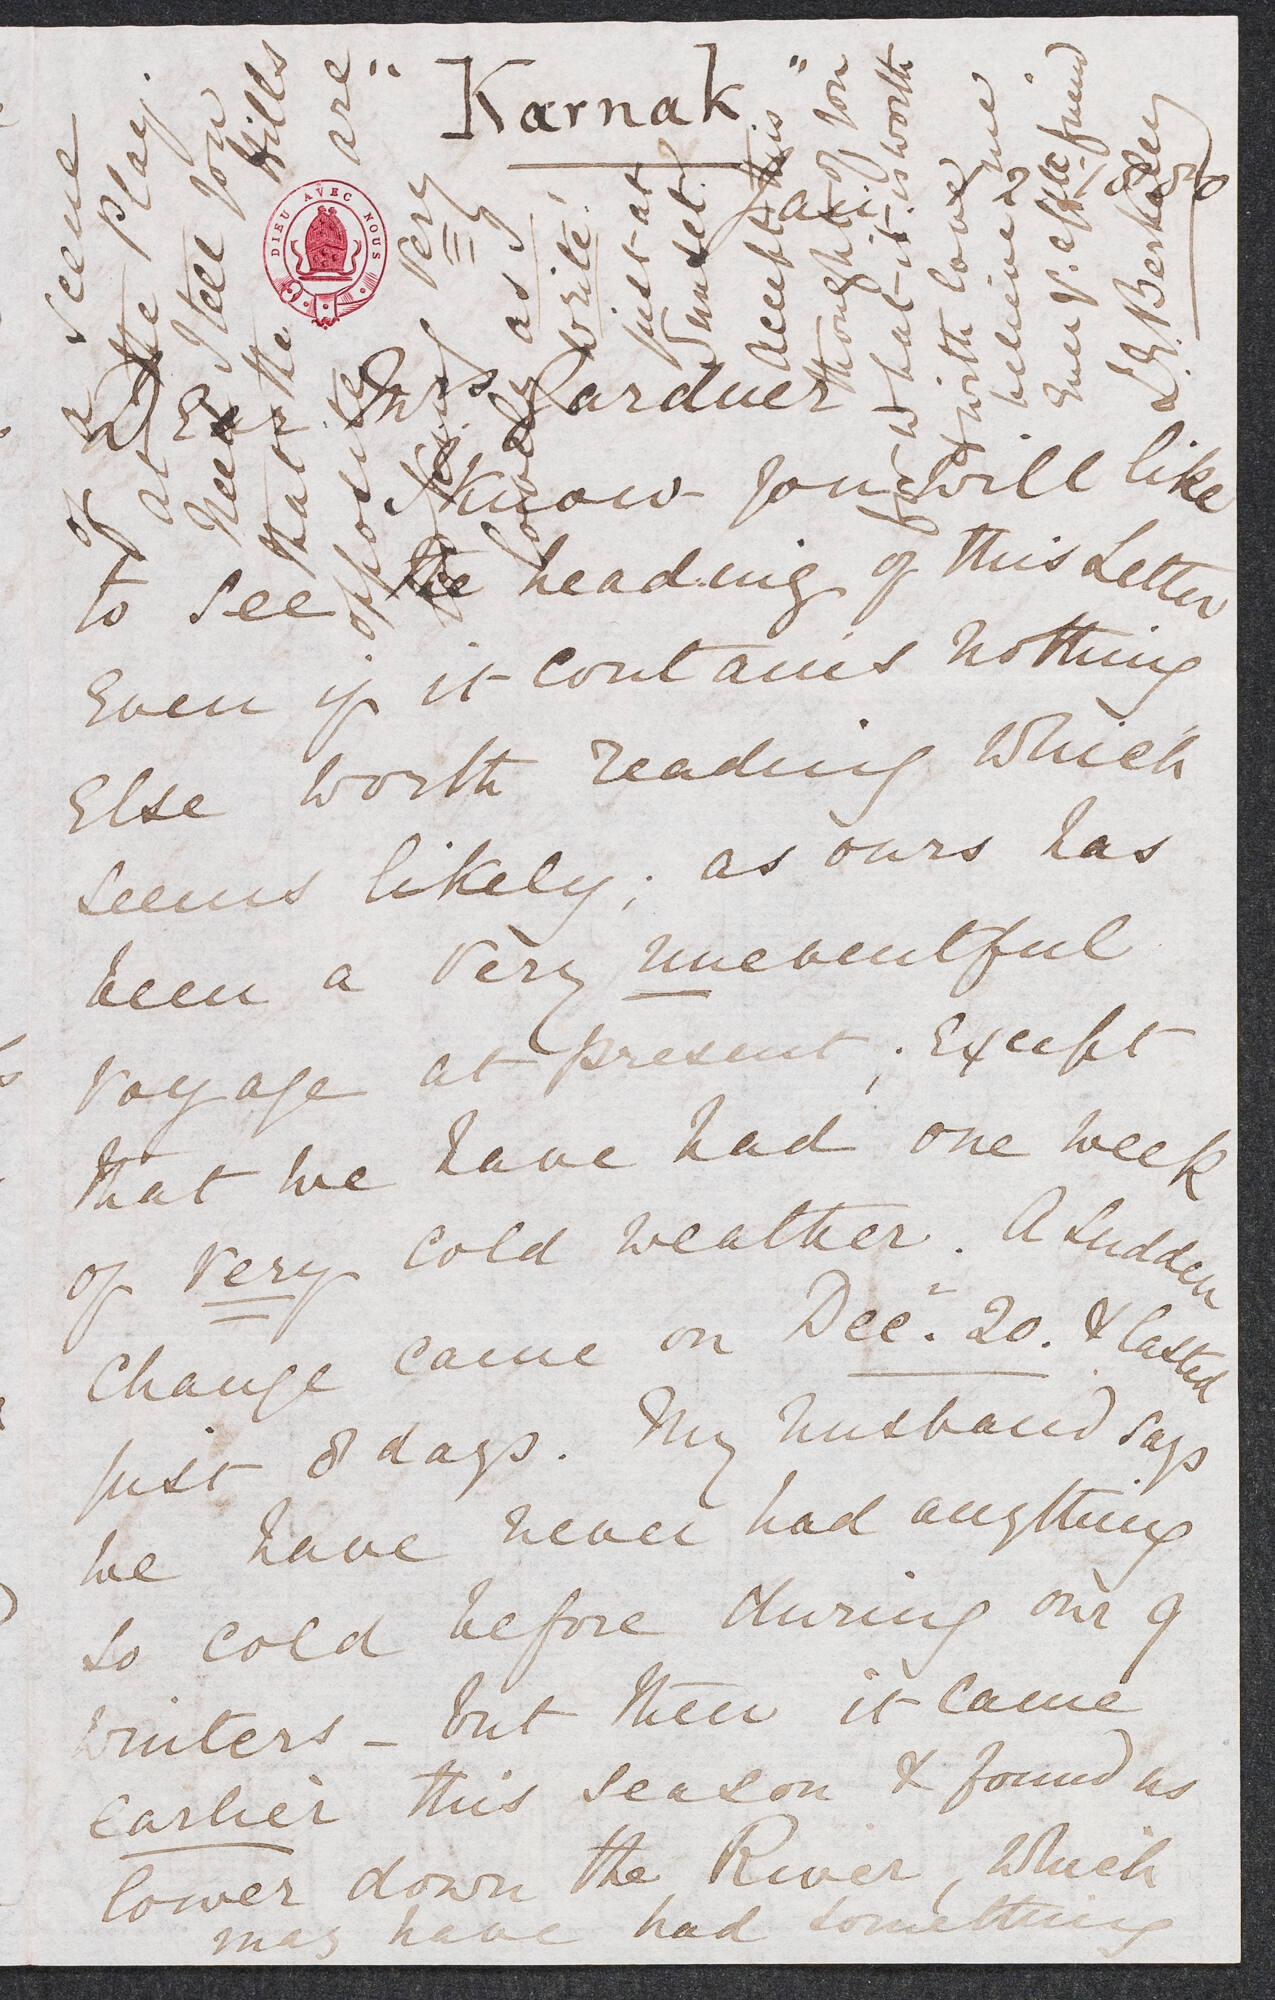 "Karnak"
Jan: 8. 80
DIEU AVEC NOUS
Dear Mrs Gardner
I know you will like
to see the heading of this Letter
Even if it contains nothing
Else worth reading which
seems likely; as ours has
been a very uneventful
voyage at present; Except
that we have had one week
of very cold weather. A sudden
change came on Decr. 20. & lasted
just 8 days. My husband says
we have never had anything
so cold before during our 9
winters – but then it came
earlier this season & found us
lower down the River, which
may have had something
of a scene
at the Play.
Need I tell you
that the Hills
opposite are
very
lovely as I
write!
just at
Sunset.
accept this
thought of you
for what it is worth
& with love
believe me
Ever yr. affte friend
L. E. Berkeley